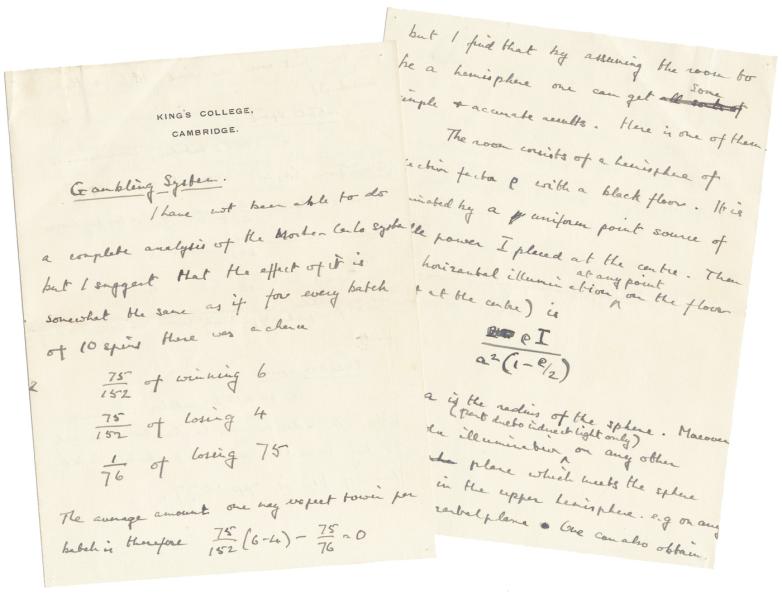 KING'S COLLEGE,
CAMBRIDGE.
Gambling System.
I have not been able to do
a complete analysis of the Monte-Carlo system
but I suggest that the effect of it is
somewhat the same as if for every batch
of 10 spins there was a chance
75/152 of winning 6
75/152 of losing 4
1/76 of losing 75
The average amount one may expect to win per
batch is therefore 75/152 (6-4) - 75/76 = 0
but I find that by assuming the room to
be a hemisphere one can get all sorts of some
simple & accurate results. Here is one of them.
The room consists of a hemisphere of
ection factor ρ with a black floor. It is
minated by a uniform point source of
le power I placed at the centre. Then
horizontal illumination at any point on the floor
at the centre) is
ρI / a²(1 - ρ/2)
a is the radius of the sphere. Moreover
(part due to indirect light only)
illumination on any other
plane which meets the sphere
in the upper hemisphere. e.g on any
zontal plane. One can also obtain